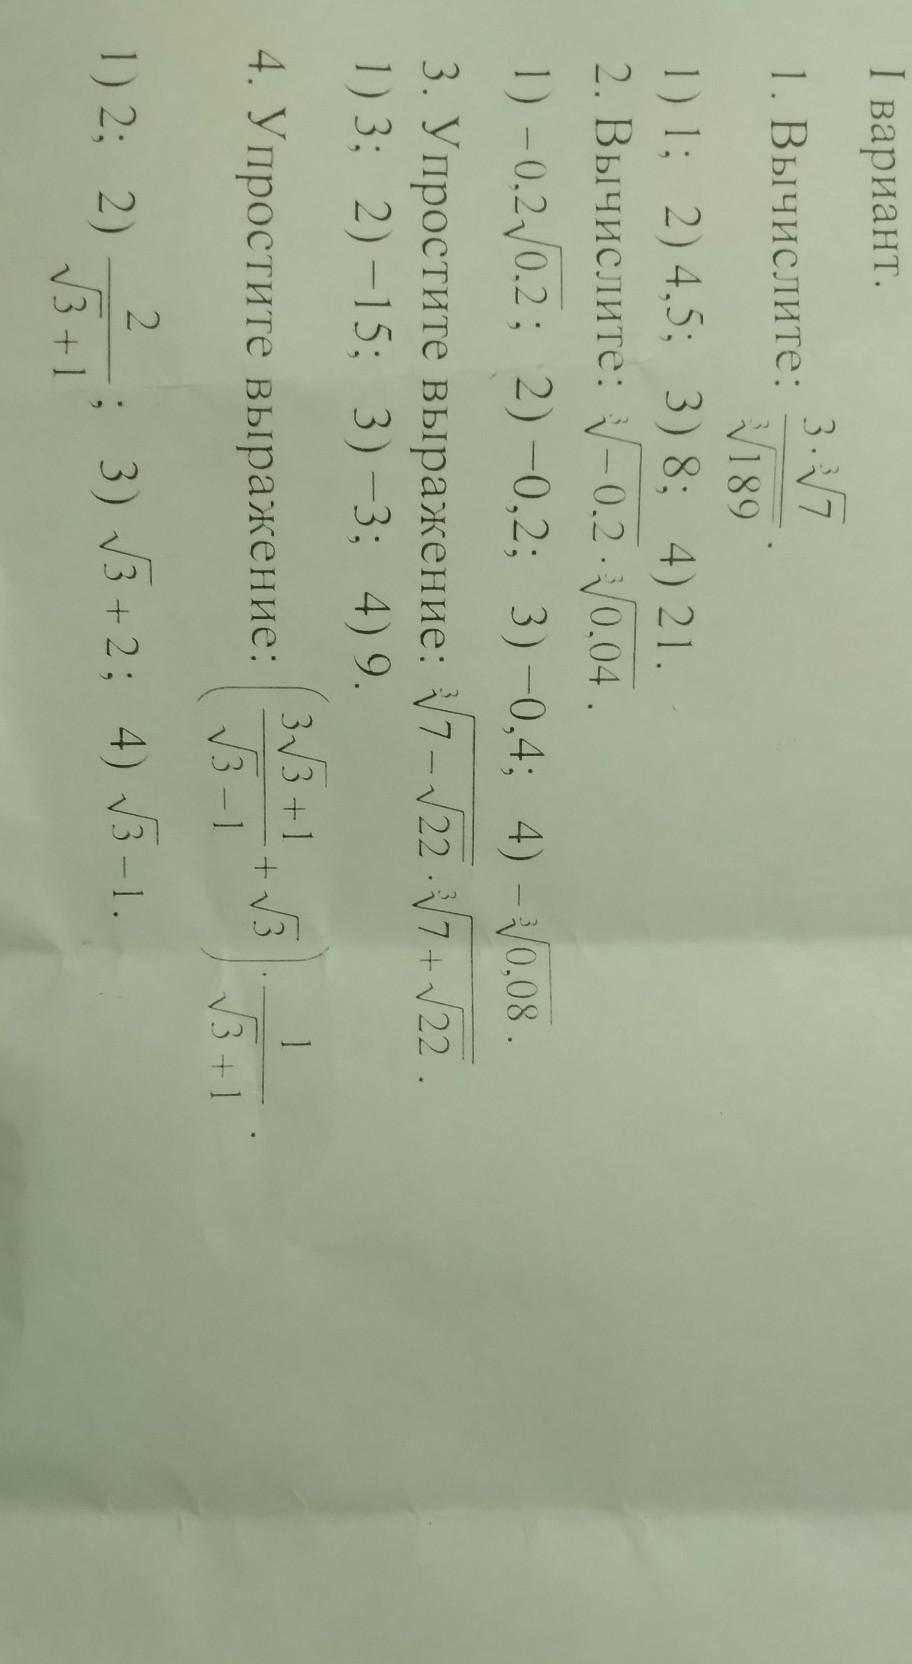 I вариант.
1. Вычислите: \frac{3 \cdot \sqrt[3]{7}}{\sqrt[3]{189}}.
1) 1; 2) 4,5; 3) 8; 4) 21.
2. Вычислите: \sqrt[3]{-0,2} \cdot \sqrt[3]{0,04}.
1) −0,2\sqrt{0,2}; 2) −0,2; 3) −0,4; 4) −\sqrt[3]{0,08}.
3. Упростите выражение: \sqrt[3]{7-\sqrt{22}} \cdot \sqrt[3]{7+\sqrt{22}}.
1) 3; 2) −15; 3) −3; 4) 9.
4. Упростите выражение: \left(\frac{3\sqrt{3}+1}{\sqrt{3}-1}+\sqrt{3}\right) \cdot \frac{1}{\sqrt{3}+1}.
1) 2; 2) \frac{2}{\sqrt{3}+1}; 3) \sqrt{3}+2; 4) \sqrt{3}-1.